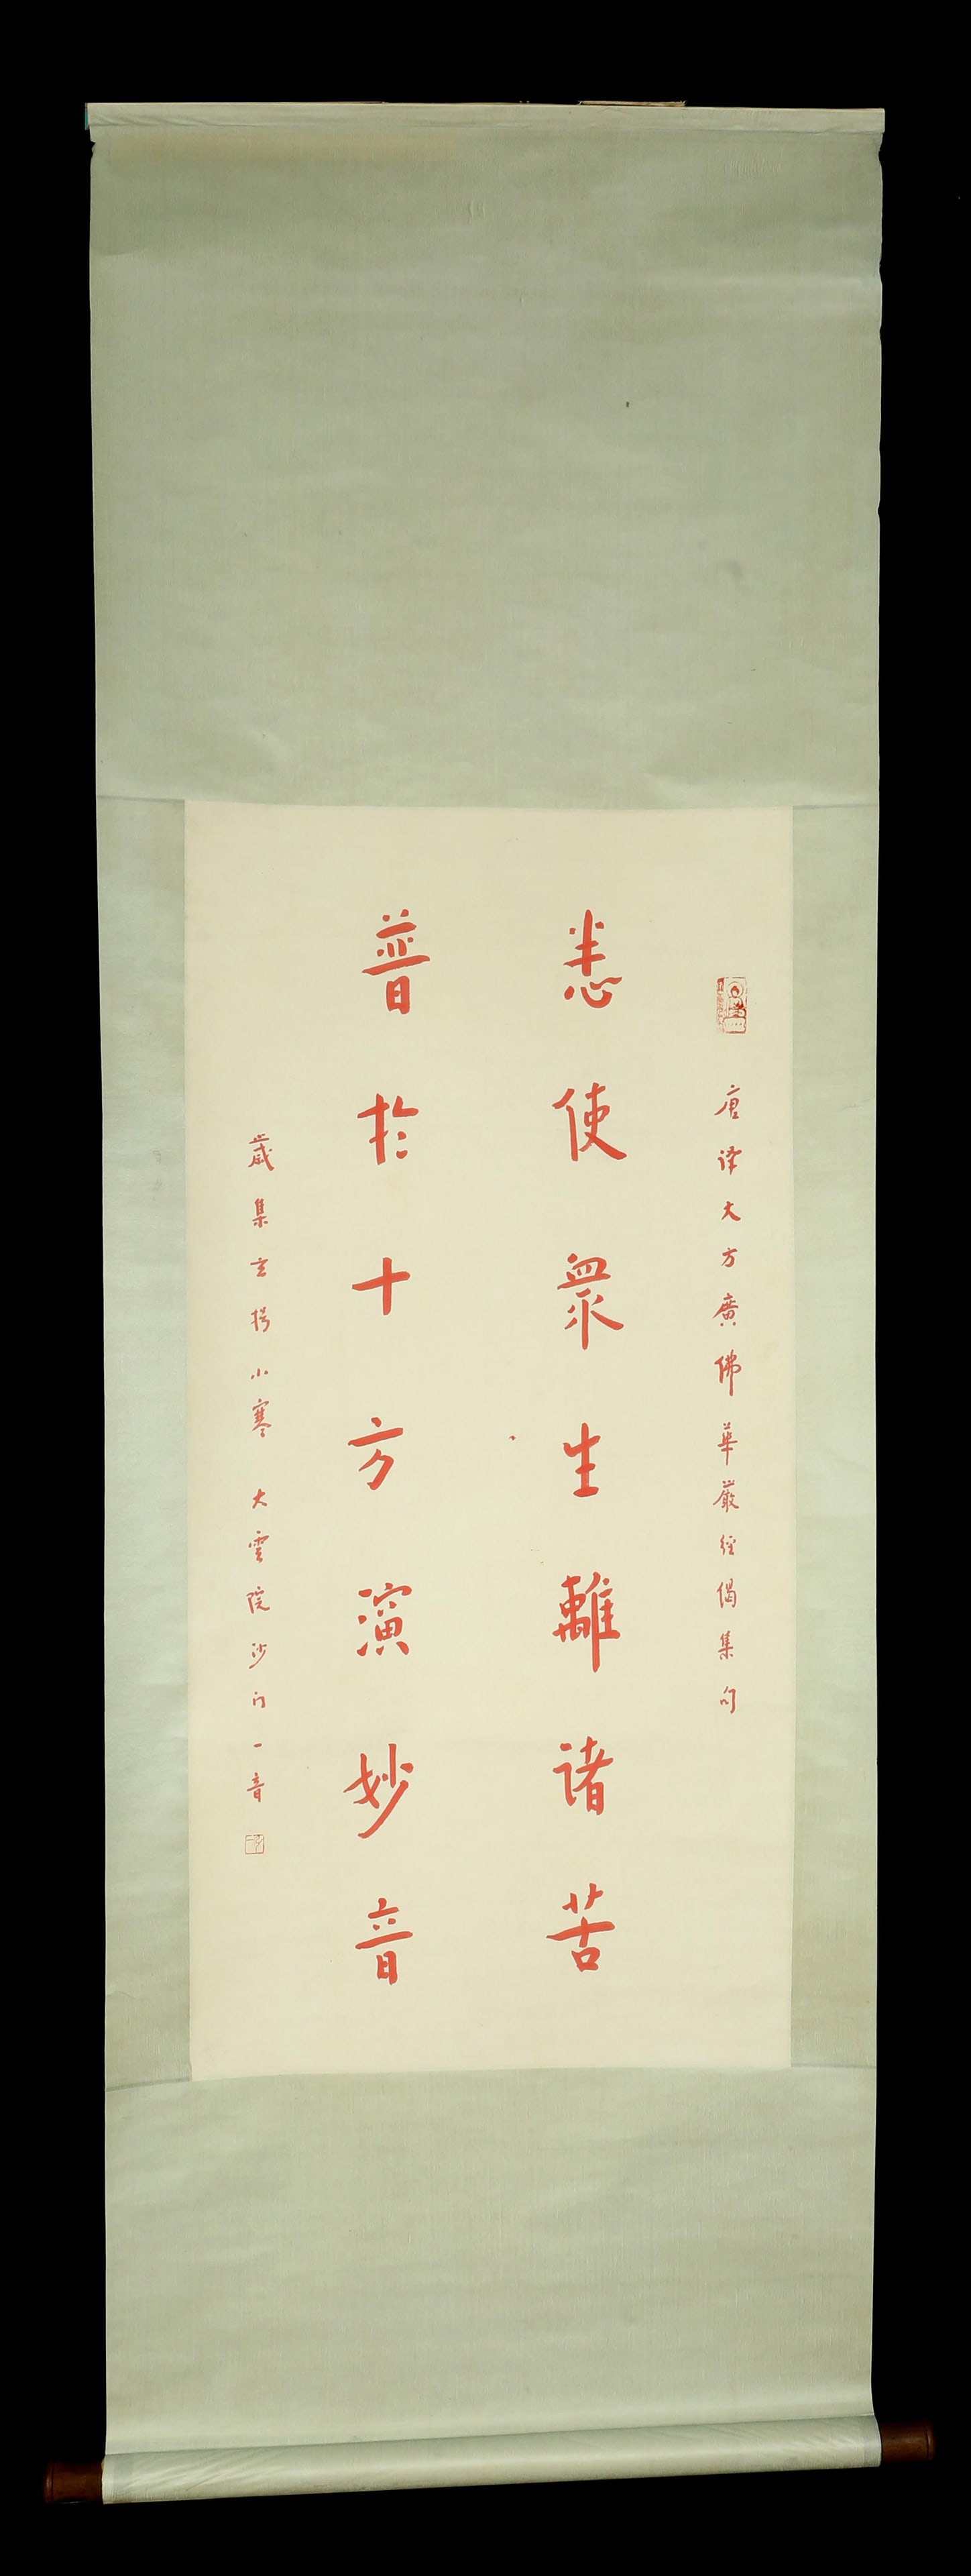 唐译大方廣佛華嚴經偈集句
悉使衆生離諸苦
普於十方演妙音
歲集玄枵小寒 大雲院沙门一音